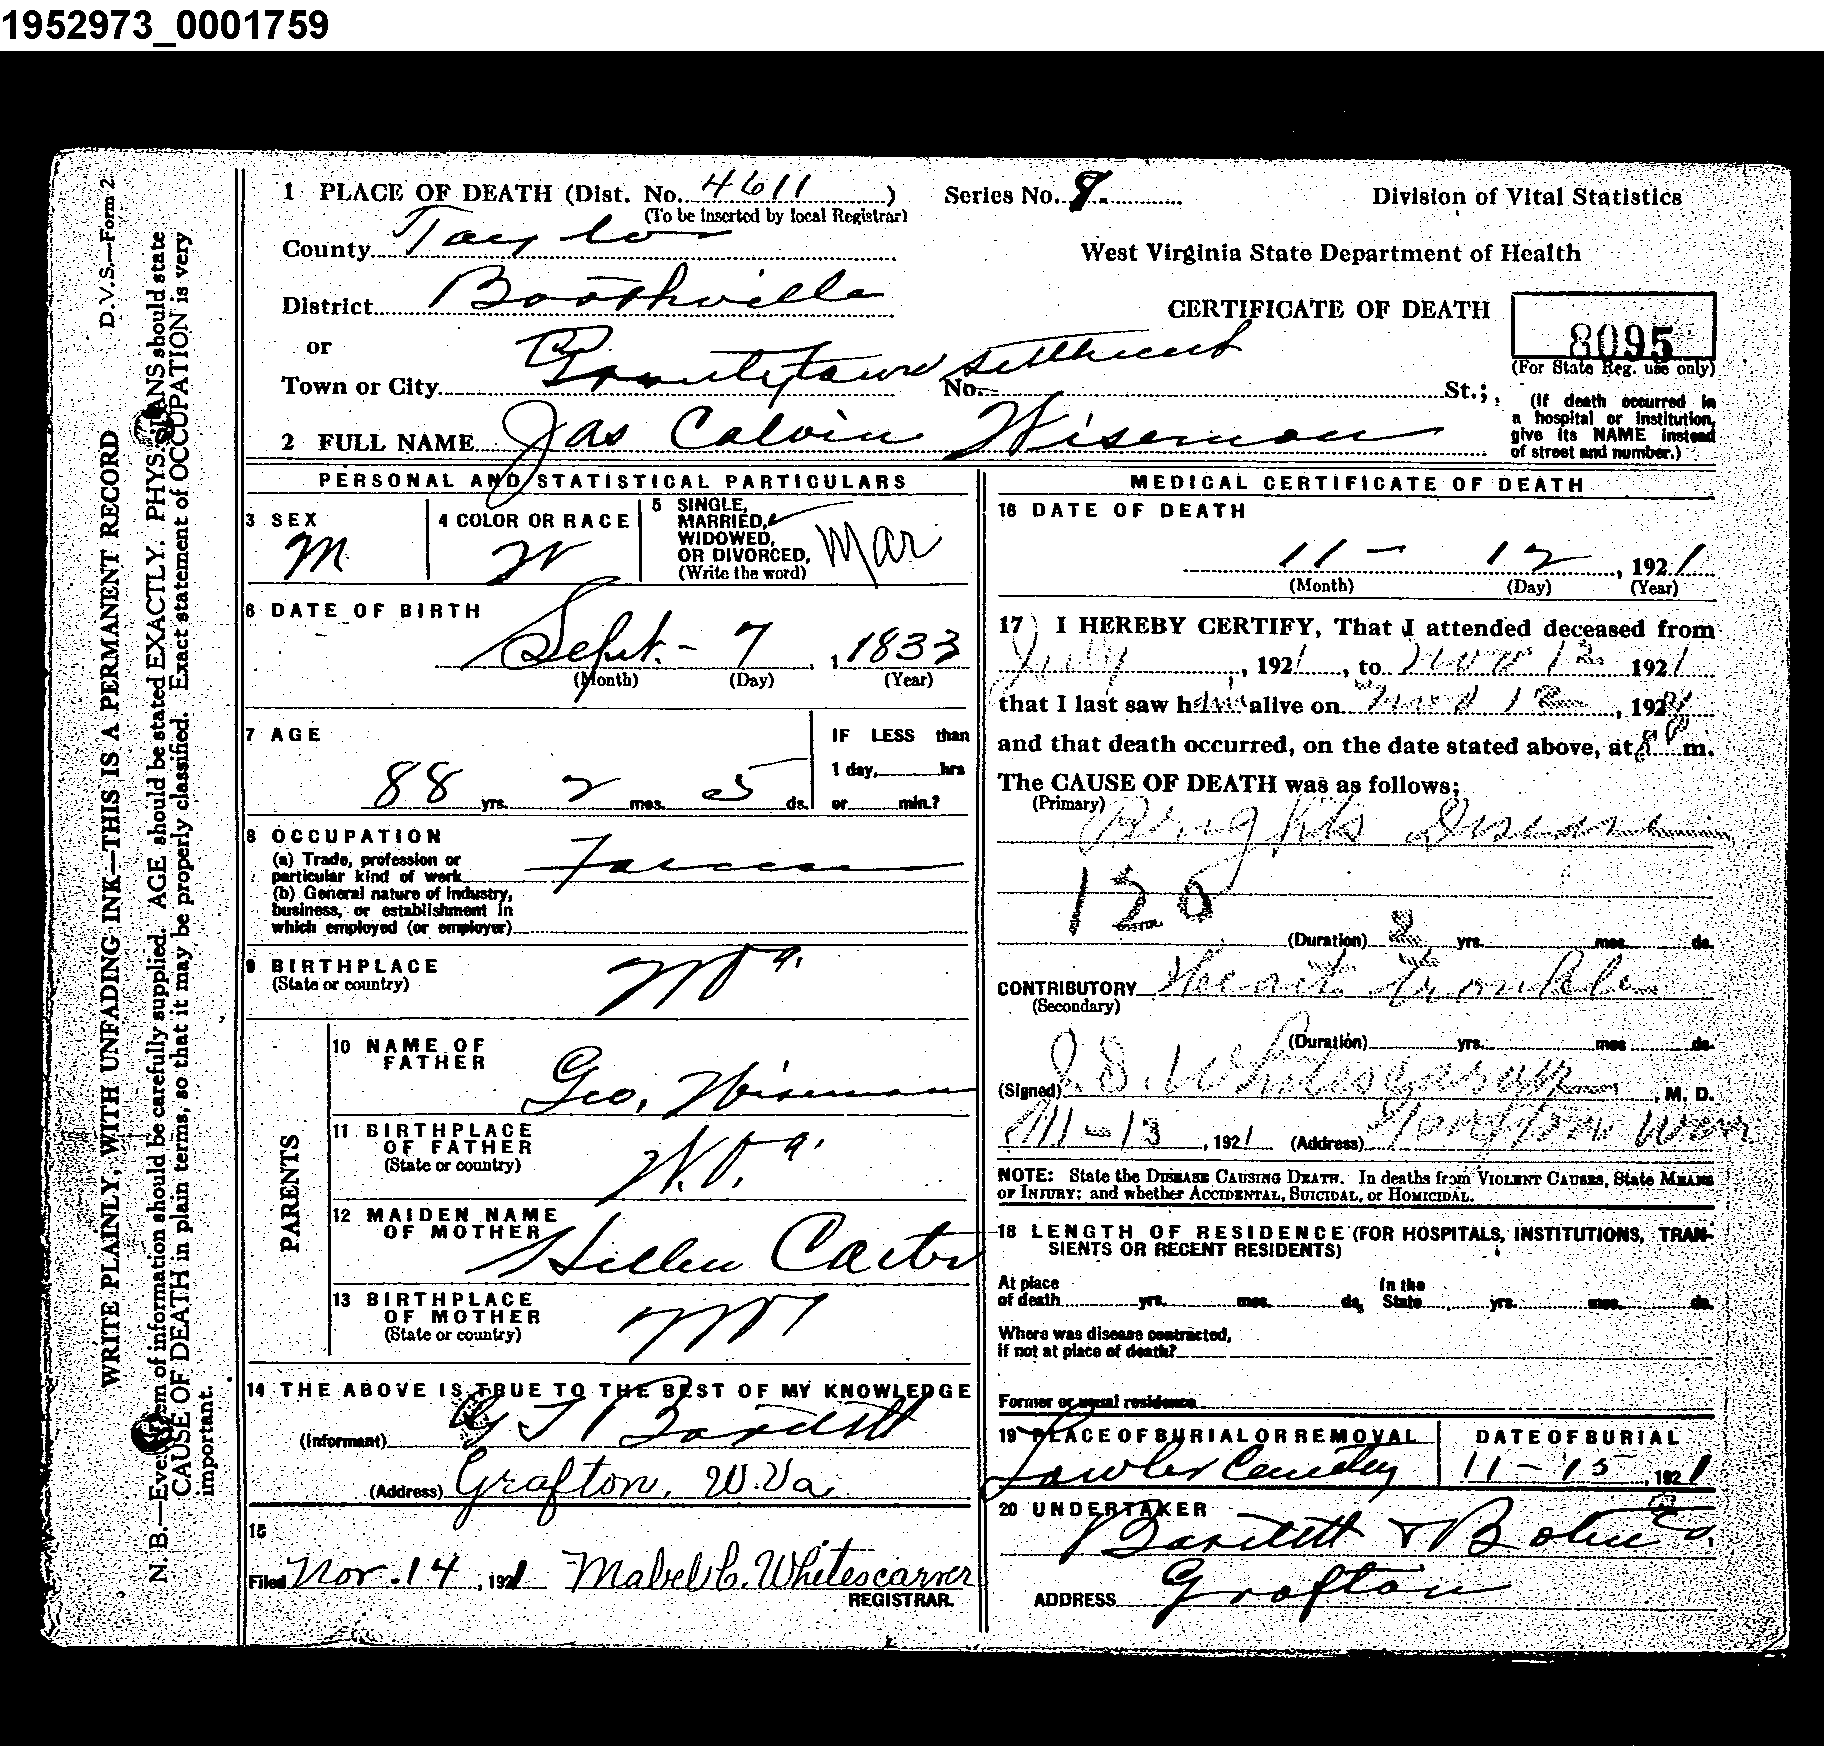 1952973_0001759
D.V.S.—Form 2
WRITE PLAINLY, WITH UNFADING INK—THIS IS A PERMANENT RECORD
N. B.—Every item of information should be carefully supplied. AGE should be stated EXACTLY. PHYSICIANS should state
CAUSE OF DEATH in plain terms, so that it may be properly classified. Exact statement of OCCUPATION is very
important.
1 PLACE OF DEATH (Dist. No. 4611 )
(To be inserted by local Registrar)
Series No. 9.
Division of Vital Statistics
County Taylor
West Virginia State Department of Health
District Boothville
CERTIFICATE OF DEATH
8095
(For State Reg. use only)
or
Town or City
No. St.;
(If death occurred in
a hospital or institution,
give its NAME instead
of street and number.)
2 FULL NAME Jas Calvin Wiseman
PERSONAL AND STATISTICAL PARTICULARS
3 SEX
M
4 COLOR OR RACE
W
5 SINGLE,
MARRIED,
WIDOWED,
OR DIVORCED,
(Write the word)
Mar
6 DATE OF BIRTH
Sept. - 7, 1833
(Month) (Day) (Year)
7 AGE
88 yrs. 2 mos. 5 ds.
IF LESS than
1 day, hrs
or min.?
8 OCCUPATION
(a) Trade, profession or
particular kind of work Farmer
(b) General nature of industry,
business, or establishment in
which employed (or employer)
9 BIRTHPLACE
(State or country)
PARENTS
10 NAME OF
FATHER
Geo. Wiseman
11 BIRTHPLACE
OF FATHER
(State or country)
W.Va.
12 MAIDEN NAME
OF MOTHER
Hellen Carter
13 BIRTHPLACE
OF MOTHER
(State or country)
14 THE ABOVE IS TRUE TO THE BEST OF MY KNOWLEDGE
(Informant) Bardett
(Address) Grafton, W.Va
15
Filed Nov. 14, 1921 Mabel C. Whitescarver
REGISTRAR.
MEDICAL CERTIFICATE OF DEATH
16 DATE OF DEATH
11 - 12, 1921
(Month) (Day) (Year)
17 I HEREBY CERTIFY, That I attended deceased from
July, 1921, to Nov 12 1921
that I last saw him alive on Nov 12, 192
and that death occurred, on the date stated above, at m.
The CAUSE OF DEATH was as follows;
(Primary)
Brights Disease
120
(Duration) 2 yrs. mos. ds.
CONTRIBUTORY Heart trouble
(Secondary)
(Duration) yrs. mos ds.
(Signed) Whitescarver, M. D.
11-13, 1921 (Address)
NOTE: State the DISEASE CAUSING DEATH. In deaths from VIOLENT CAUSES, State MEANS
OF INJURY; and whether ACCIDENTAL, SUICIDAL, or HOMICIDAL.
18 LENGTH OF RESIDENCE (FOR HOSPITALS, INSTITUTIONS, TRAN-
SIENTS OR RECENT RESIDENTS)
At place
of death yrs. mos. ds,
In the
State yrs. mos. ds.
Where was disease contracted,
if not at place of death?
Former or usual residence
19 PLACE OF BURIAL OR REMOVAL
Cemetery
DATE OF BURIAL
11-15, 1921
20 UNDERTAKER
ADDRESS Grafton